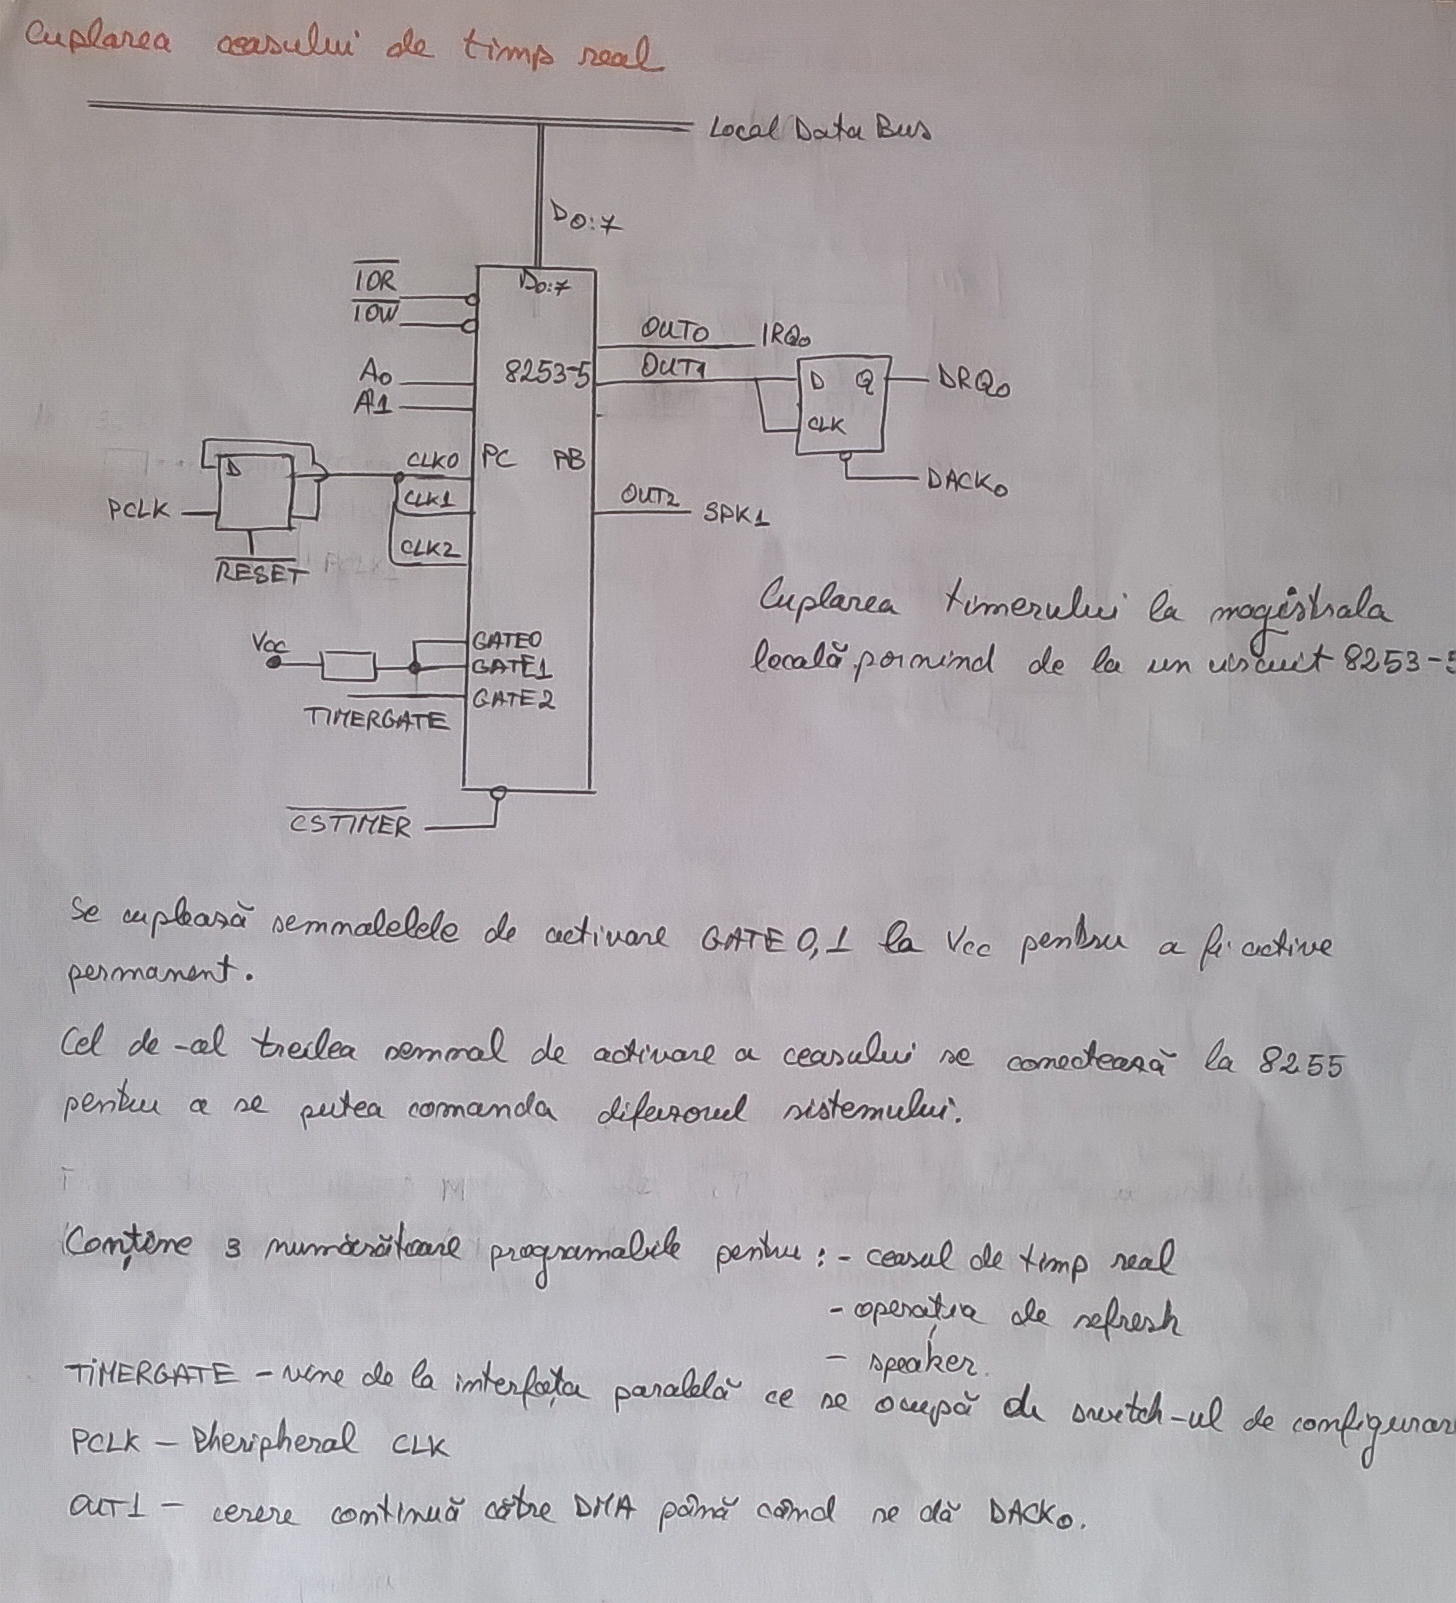 Cuplarea ceasului de timp real
Local Data Bus
D0:7
IOR
IOW
D0:7
OUT0
IRQ0
A0
8253-5
OUT1
D Q
DRQ0
A1
CLK
D
CLK0
PC
PB
DACK0
PCLK
CLK1
OUT2
SPK1
CLK2
RESET
Cuplarea timerului la magistrala
locală pornind de la un circuit 8253-5
Vcc
GATE0
GATE1
GATE2
TIMERGATE
CSTIMER
Se cuplează semnalelele de activare GATE 0,1 la Vcc pentru a fi active
permanent.
Cel de-al treilea semnal de activare a ceasului se conectează la 8255
pentru a se putea comanda difuzorul sistemului.
Conține 3 numărătoare programabile pentru: - ceasul de timp real
- operația de refresh
- speaker.
TIMERGATE - vine de la interfața paralelă ce se ocupă de switch-ul de configurar
PCLK - Pheripheral CLK
OUT1 - cerere continuă către DMA până când se dă DACK0.